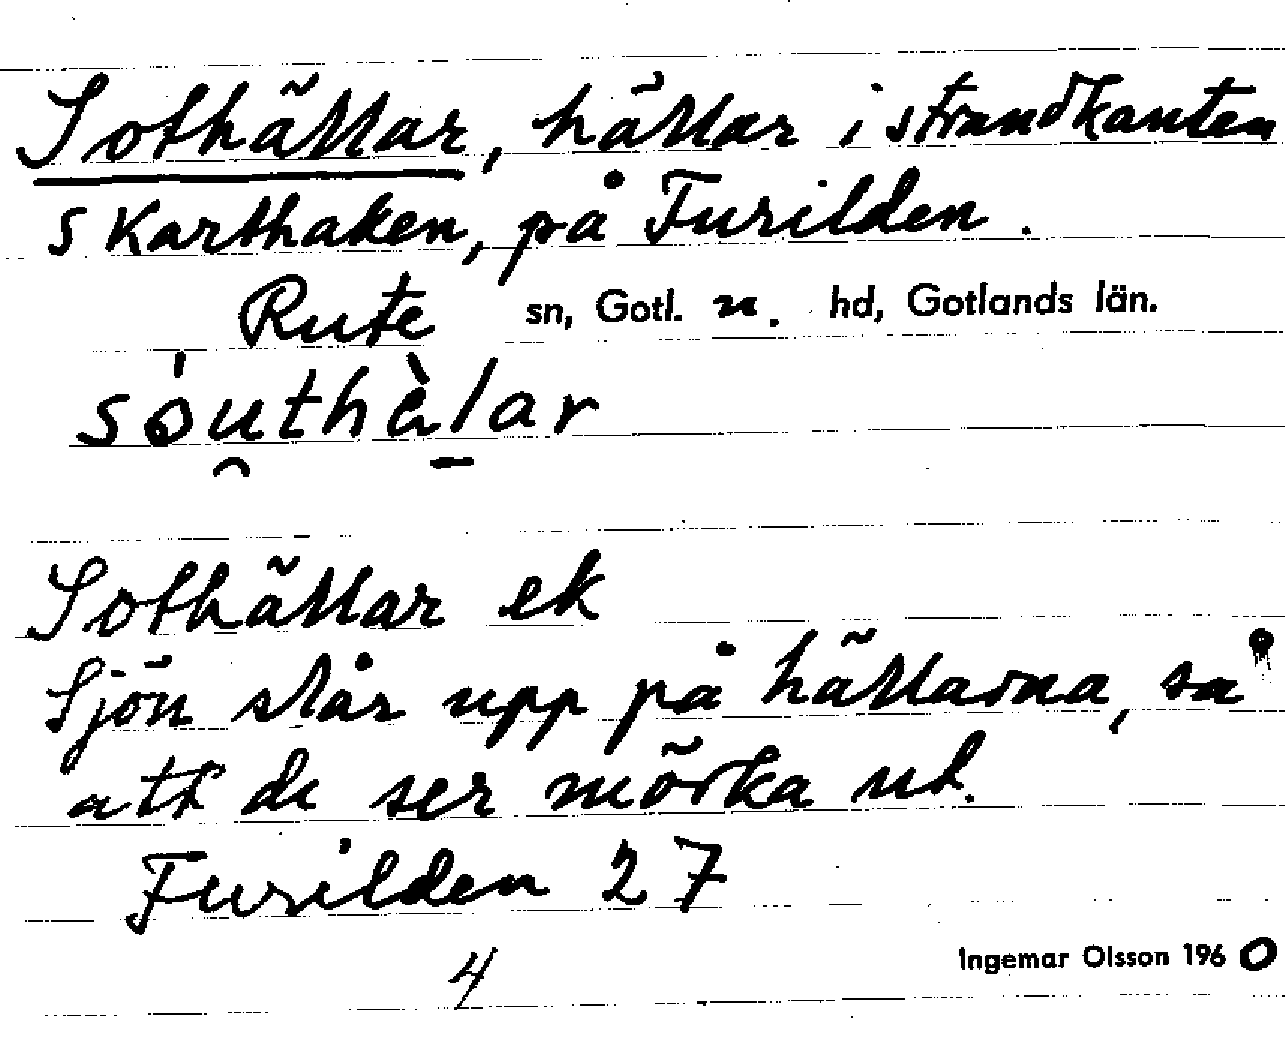 Sothällar, hällar i strandkanten
S Karthaken, på Furilden.
Rute sn, Gotl. n. hd, Gotlands län.
só̯uthàlar
Sothällar ek
Sjön slår upp på hällarna, så
att de ser mörka ut.
Furilden 27
4
Ingemar Olsson 1960